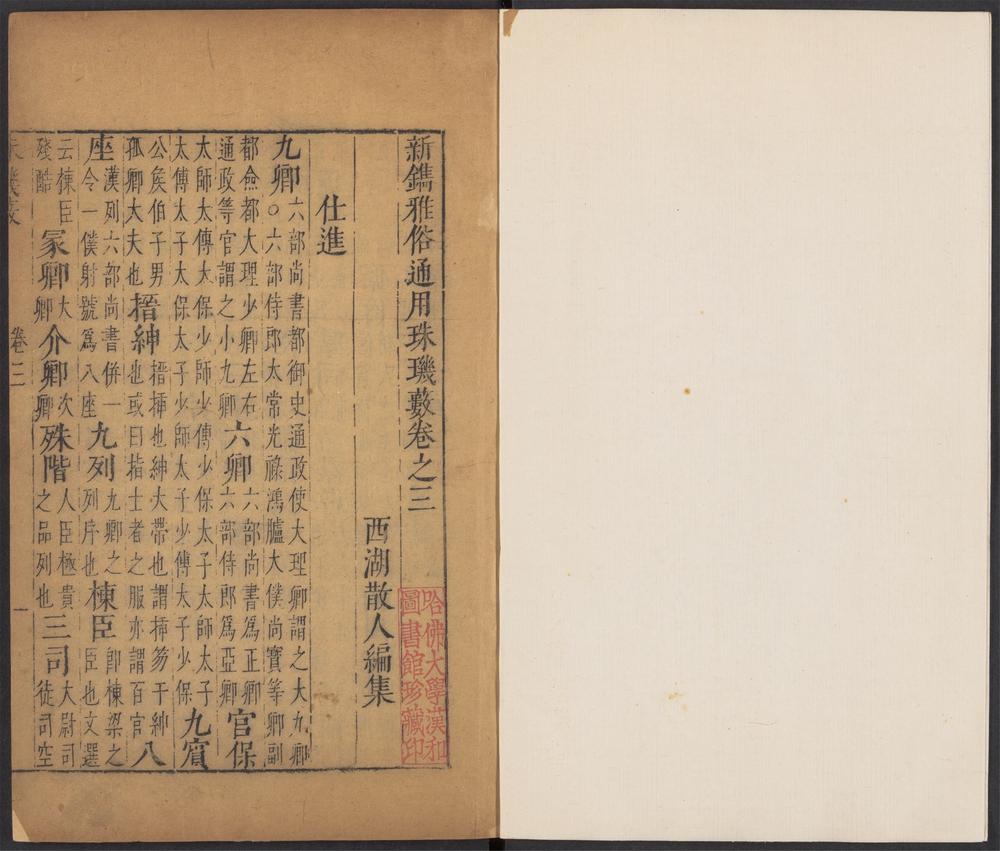 新鐫雅俗通用珠璣藪卷之三
西湖散人編集
仕進
九卿 六部尚書都御史通政使大理卿謂之大九卿
○六部侍郎太常光祿鴻臚大僕尚寶等卿副
都僉都大理少卿左右
通政等官謂之小九卿 六卿 六部尚書爲正卿
六部侍郎爲亞卿 官保
太師太傅太保少師少傅少保太子太師太子
太傅太子太保太子少師太子少傅太子少保 九賔
公矦伯子男
孤卿大夫也 搢紳 搢揷也紳大帶也謂揷笏于紳
也或曰指士者之服亦謂百官 八
座 漢列六部尚書併一
令一僕射號爲八座 九列 九卿之
列序也 棟臣 卽棟梁之
臣也文選
云棟臣
殘酷 冢卿 大
卿 介卿 次
卿 殊階 人臣極貴
之品列也 三司 大尉司
徒司空
卷三
一
哈佛大學漢和
圖書館珍藏印